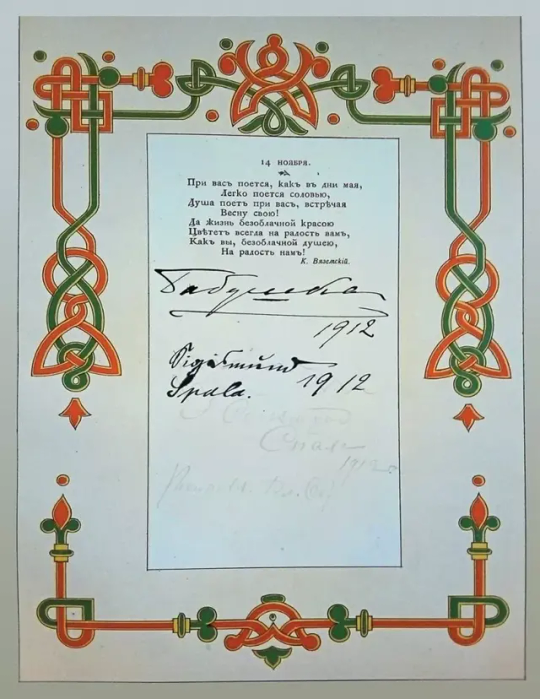 14 ноября.
При васъ поется, какъ въ дни мая,
Легко поется соловью,
Душа поетъ при васъ, встрѣчая
Весну свою!
Да жизнь безоблачной красою
Цвѣтетъ всегда на радость вамъ,
Какъ вы, безоблачной душею,
На радость намъ!
К. Вяземскій.
Бабушка
1912
Sigismund
Spala. 1912
Спала
1912